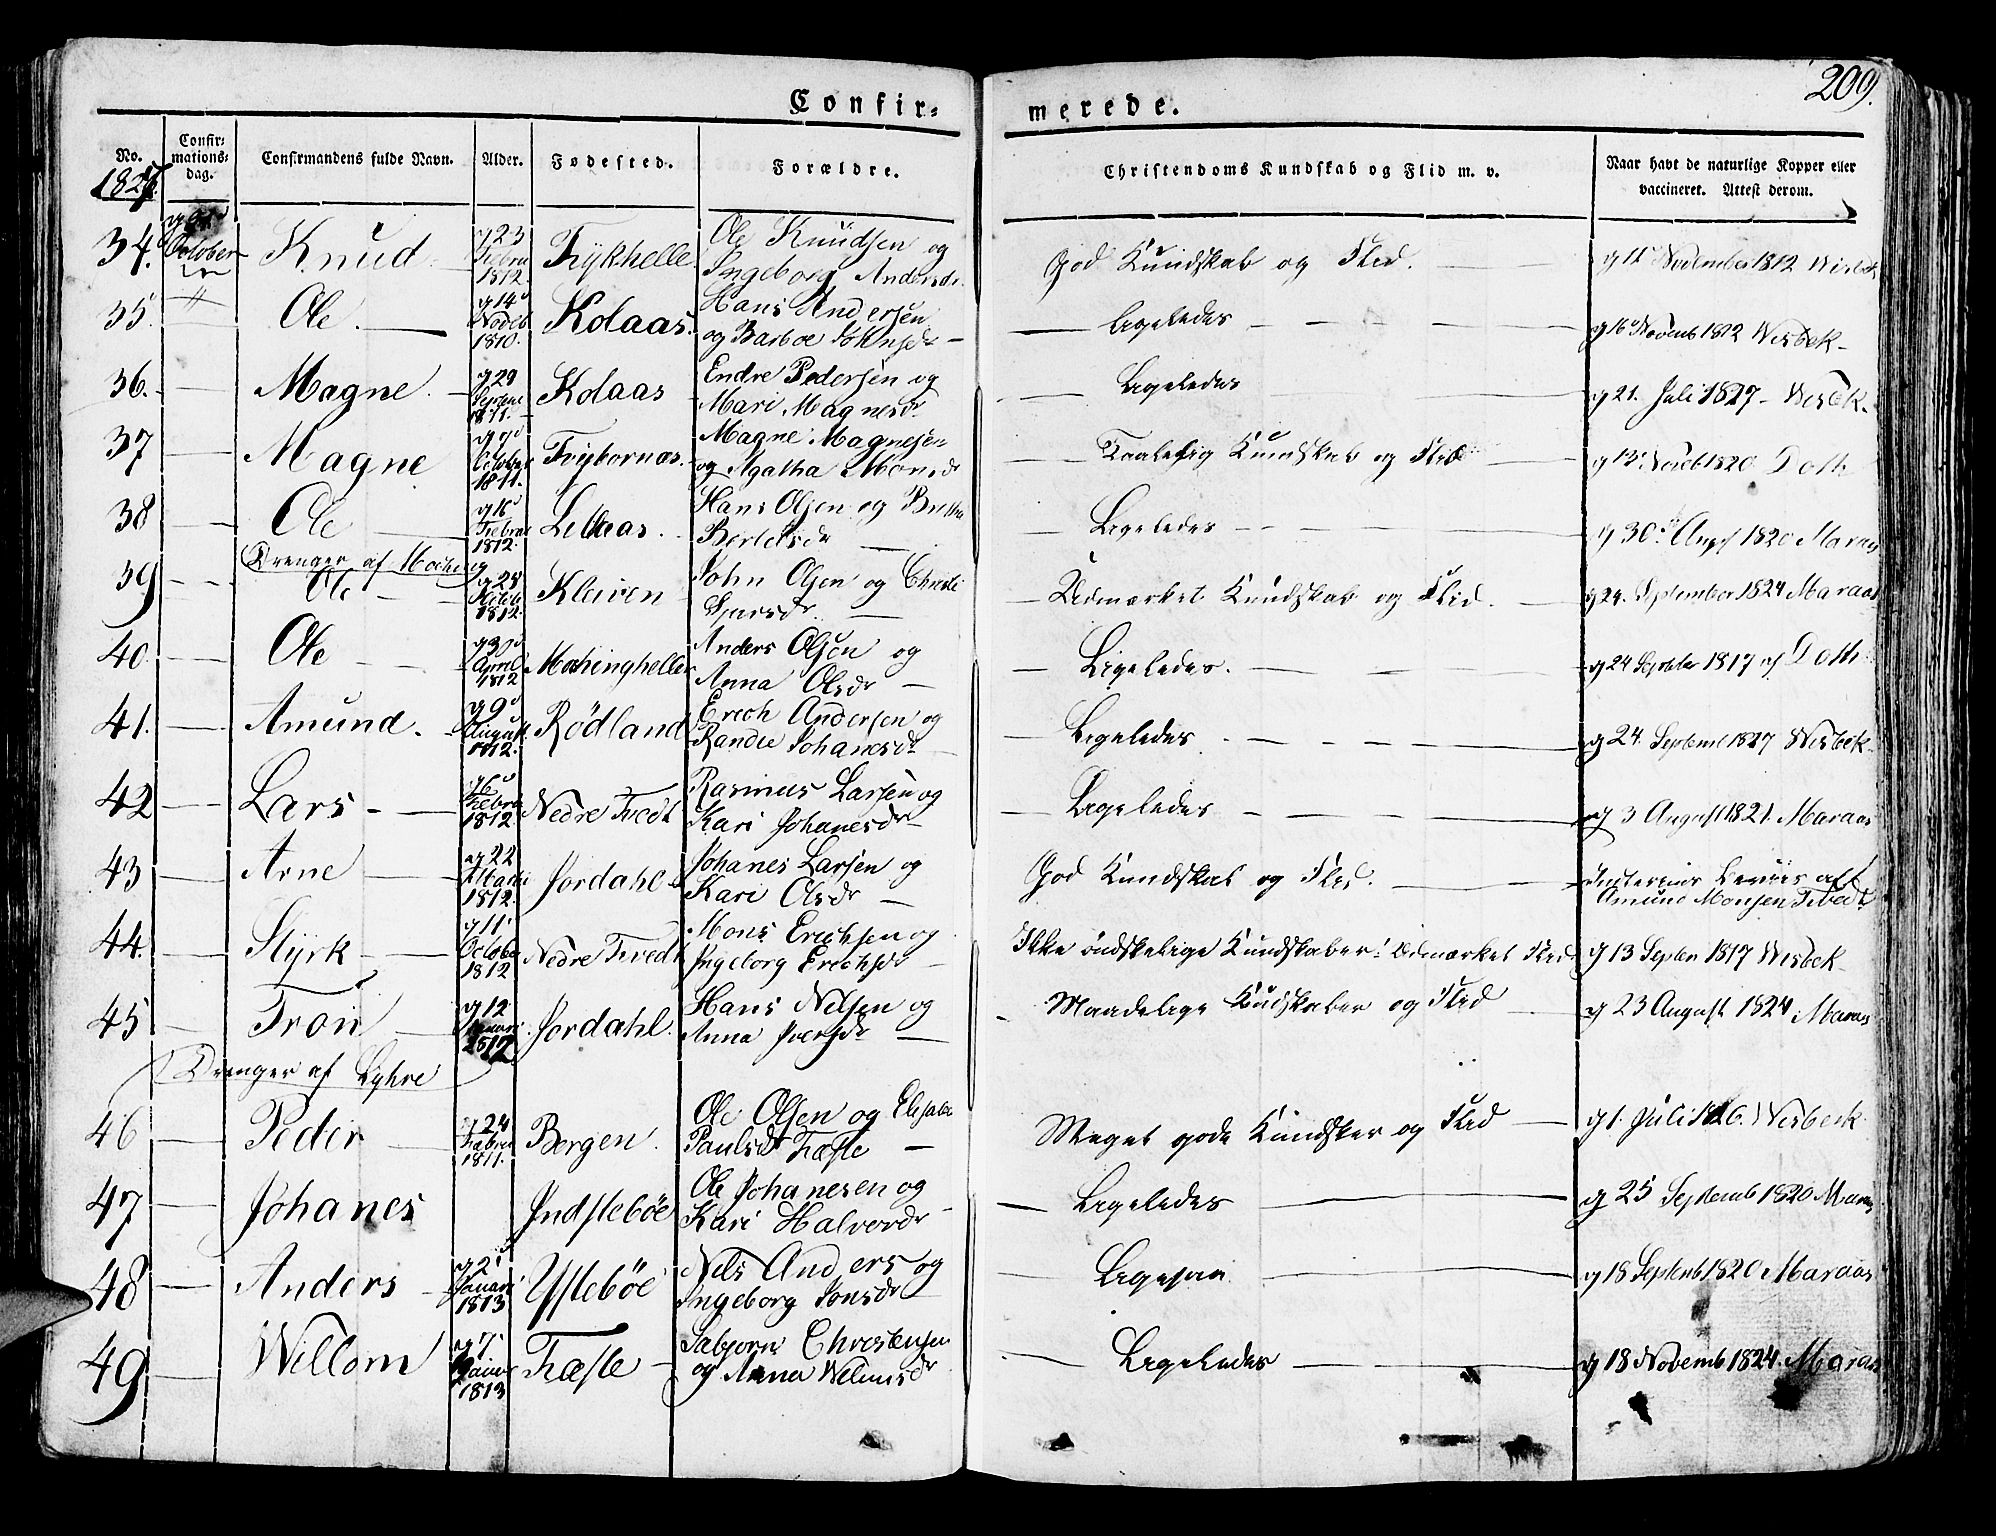 Confir=
merede.
209.
No.
Confir-
mations-
dag.
Confirmandens fulde Navn.
Alder.
Fødested.
Forældre.
Christendoms Kundskab og Flid m. v.
Naar havt de naturlige Kopper eller
vaccineret. Attest derom.
1827.
34. October Knud 23 Febru 1812. Ole Knudsen og
Ingeborg Andersdr
God Kundskab og Flid. November 1812 Wisbek
35. Ole. 14 Noveb 1810. Kolaas. Hans Andersen
og Barboe Johnsdr
Ligeledes 16 Novemb 1812 Wisbek
36. Magne. 29 Septemb 1811. Kolaas Endre Pedersen og
Mari Magnesdr
Ligeledes 21. Juli 1827 Wisbek.
37 Magne October 1811. Magne Magnesen
og Agatha Monsdr
Taalelig Kundskab og Flid Noveb 1820 Doth
38 Ole Febru 1812. Hans Olsen og
Ligeledes 30 Aug 1820 Maraas
Drenger af
39 Ole Kleiven John Olsen og
Udmærket Kundskab og Flid. 24. September 1824 Maraas
40. Ole 30 April 1812 Anders Olsen og
Anna Olsdr
Ligeledes. 24 September 1817 af Doth
41. Amund. 9 August 1812. Rödland Erich Andersen og
Randie Johanesdr
Ligeledes 24. Septemb 1827 Wisbek
42 Lars 6 Febru 1812. Nedre Tvedt Rasmus Larsen og
Kari Johanesdr
Ligeledes 3 August 1821. Maraas
43 Arne 22 Martii 1812. Jordahl Johanes Larsen og
Kari Olsdr
God Kundskab og Flid. Beviis
Amund Monsen Tvedt
44. Styrk 11 Octobe 1812 Nedre Tvedt Mons Erichsen og
Ingeborg Erichsdr
Ikke öndskelige Kundskaber. Udmærket Flid 13 Septen 1817 Wisbek
45 Tron 12 Januari Jordahl. Hans Nelsen og
Anna Iversdr
Maadelige Kundskaber og Flid 23 August 1824 Maraas
Drenger af Lyhre
46 Peder 24 Febru 1811. Bergen. Ole Olsen og
Paulsdt Tæfte
Meget gode Kundskaber og Flid 1. Juli Wisbeck
47 Johanes Indsteböe Ole Johanesen og
Kari Halvordr
Ligeledes 25 Septemb 1820 Maraas
48 Anders 2 Januari 1813 Ysteböe Nels Anders og
Ingeborg Jonsdr
Ligesaa 18 Septemb 1820 Maraas
49 Willom 7 Januar 1813 Tæfte Christensen
og Anna Welumsdr
Ligeledes 18 Novemb 1824. Maraas